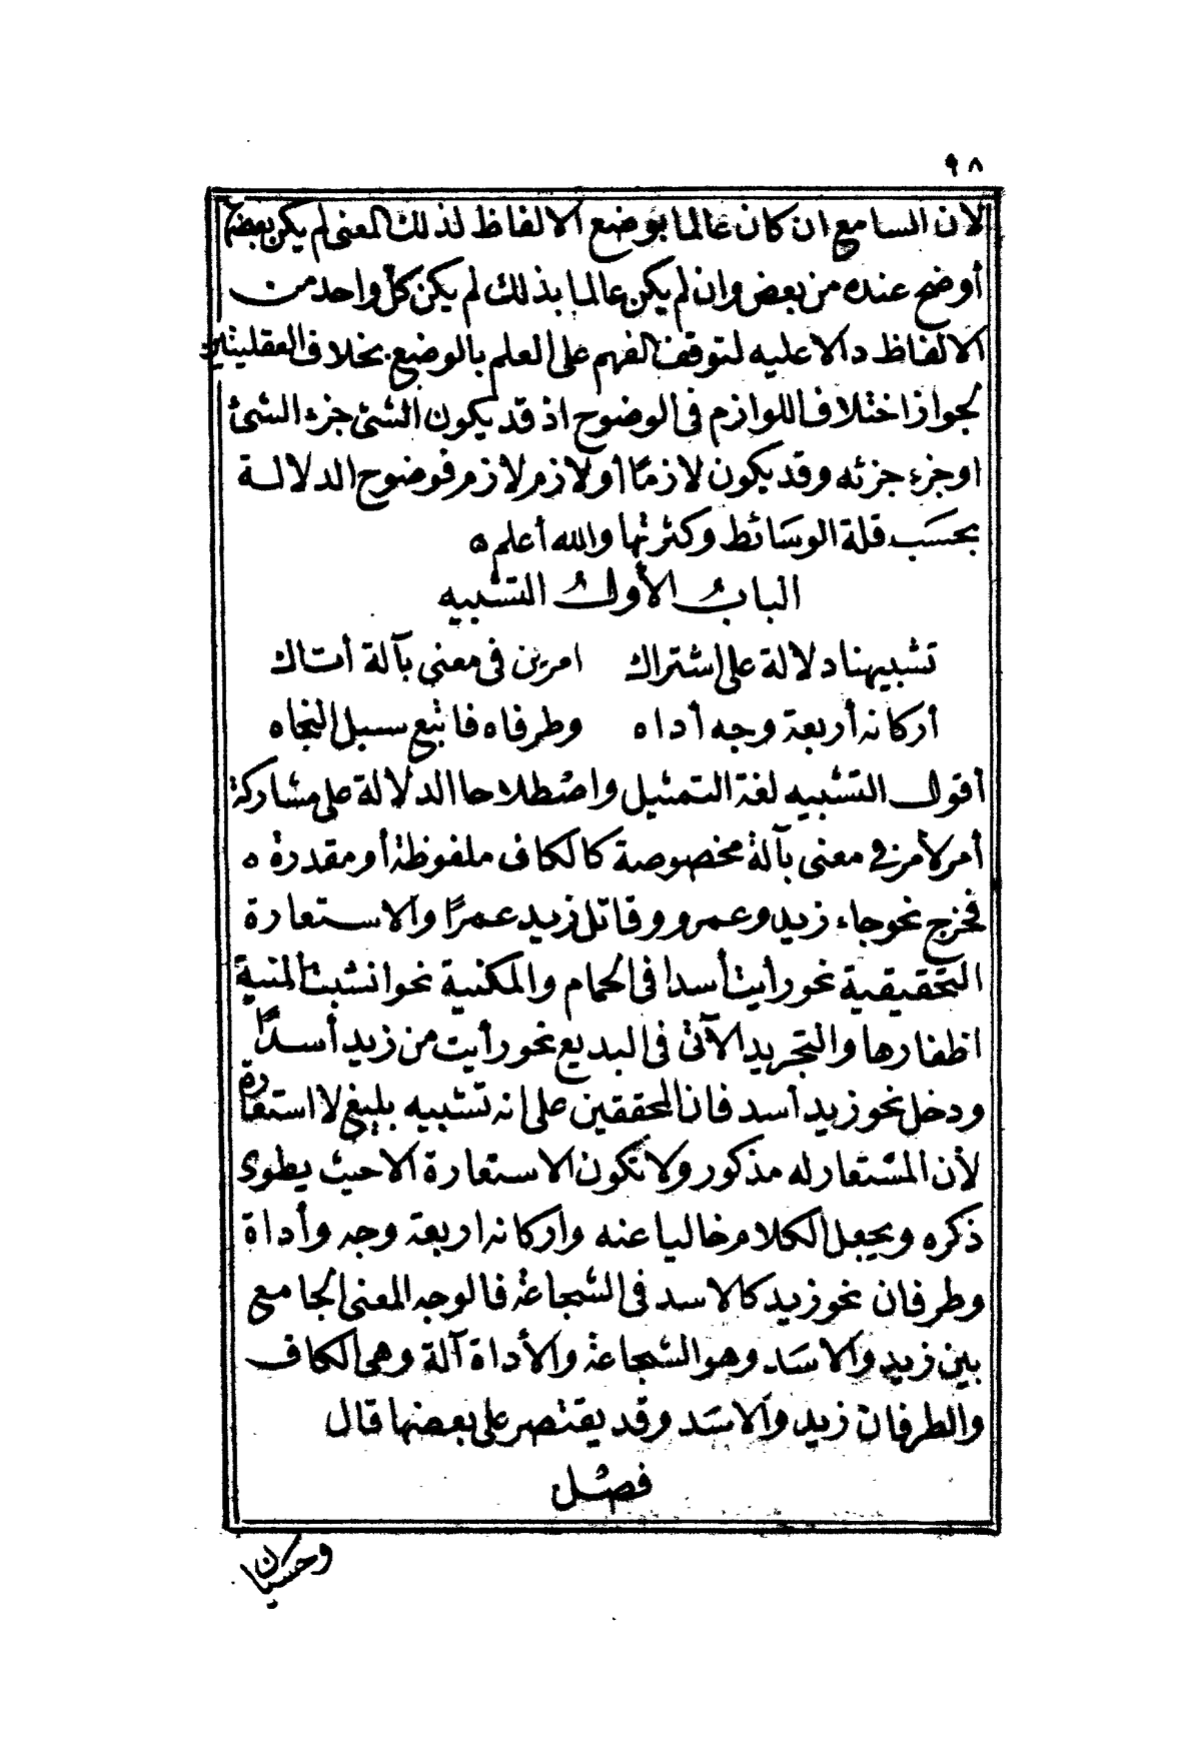 ٩٨
لان السامع ان كان عالما بوضع الالفاظ لذلك المعنى لم يكن بعضها
أوضح عنده من بعض وان لم يكن عالما بذلك لم يكن كل واحد من
الالفاظ دالا عليه لتوقف الفهم على العلم بالوضع بخلاف العقليتين
لجواز اختلاف اللوازم في الوضوح اذ قد يكون الشئ جزء الشئ
او جزء جزئه وقد يكون لازما أو لازم لازم فوضوح الدلالة
بحسب قلة الوسائط وكثرتها والله أعلم ه
الباب الأول التشبيه
تشبيهنا دلالة على اشتراك امرين في معنى بآلة أتاك
أركانه أربعة وجه أداه وطرفاه فاتبع سبل النجاه
أقول التشبيه لغة التمثيل واصطلاحا الدلالة على مشاركة
أمر لأمر في معنى بآلة مخصوصة كالكاف ملفوظة أو مقدرة ه
فخرج نحو جاء زيد وعمرو وقاتل زيد عمرًا والاستعارة
التحقيقية نحو رأيت أسدا في الحمام والمكنية نحو انشبت المنية
اظفارها والتجريد الآتى في البديع نحو رأيت من زيد أسدًا
ودخل نحو زيد أسد فان المحققين على انه تشبيه بليغ لا استعارة
لأن المستعار له مذكور ولا تكون الاستعارة الا حيث يطوى
ذكره ويجعل الكلام خاليا عنه واركانه اربعة وجه وأداة
وطرفان نحو زيد كالاسد في الشجاعة فالوجه المعنى الجامع
بين زيد والاسد وهو الشجاعة والأداة آلة وهى الكاف
والطرفان زيد والاسد وقد يقتصر على بعضها قال
فصل
وحسيان